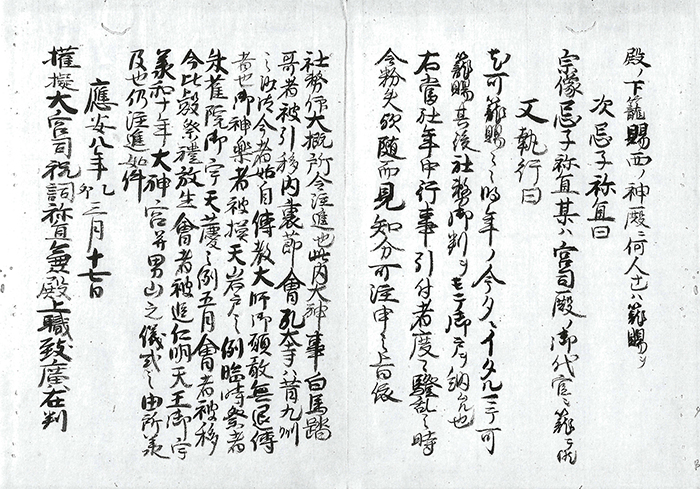 殿ノ下籠賜西ノ神殿ニ何人モ籠賜ヲ
次忌子祢宜曰
宗像忌子祢宜某ハ宮司殿ノ御代官ニ籠
又執行曰
可籠賜ミミ時年ノ今タニイタルニテ可
籠賜其後社務御判ヲモテ御戸ヲ納
右當社年中行事引付者度々騒乱之時
令粉失欤随而見知分可注申之旨依
社務仰大概所令注進也此内大神事白馬踏
哥者被引移内裏節會孔大寺者昔九州
之比今者始自傳教大師御願敢無退傳
者也御神樂者被摸天岩戸之例臨時祭者
朱雀院御宇天慶之例五月會者被移
今比叡祭禮放生會者被進仁明天王御宇
承和十年大神宮并男山之儀式之由所承
及也仍注進如件
應安八年乙卯三月十七日
權擬大宮司祝詞祢宜兼殿上職致廣在判